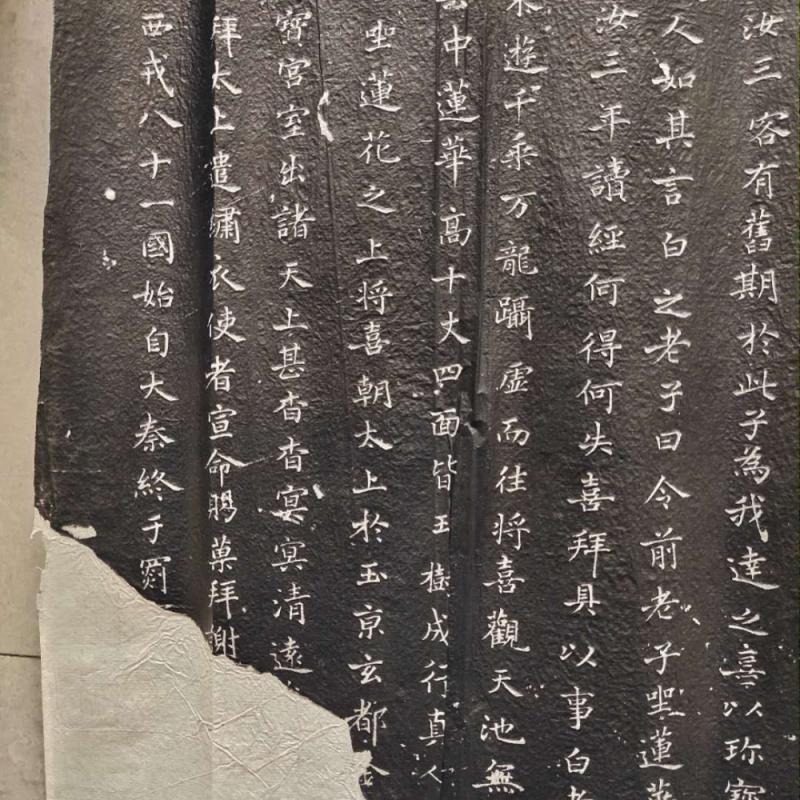 汝三客有舊期於此子為我達之喜以珎寳
人如其言白之老子曰令前老子坐蓮華
汝三年讀經何得何失喜拜具以事白老
遊千乘万龍躡虛而往將喜觀天池無
中蓮華高十丈四面皆玉樹成行真人
坐蓮花之上將喜朝太上於玉京玄都金
寶宮室出諸天上甚杳杳冥冥清遠
拜太上遣繡衣使者宣命賜菓拜謝
西戎八十一國始自大秦終于罽